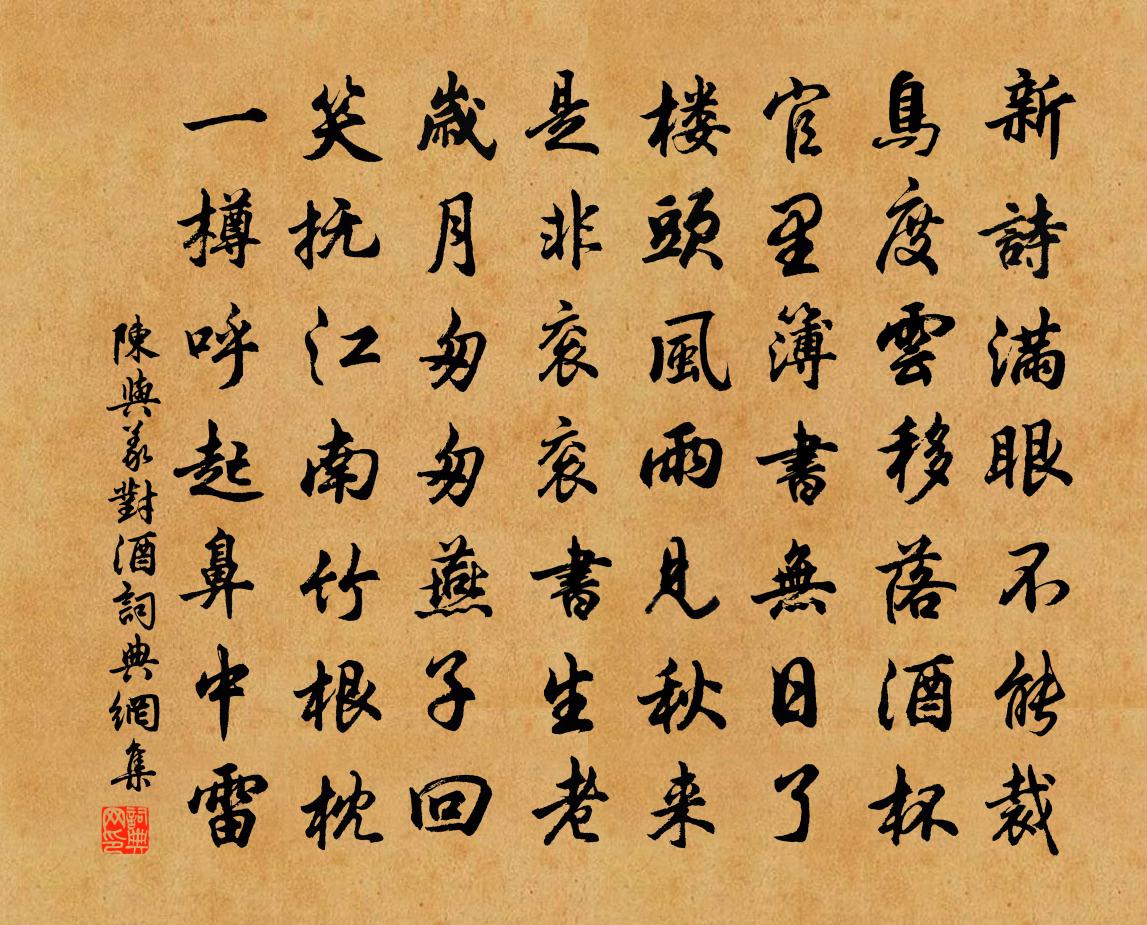 新詩滿眼不能裁
鳥度雲移落酒杯
官里簿書無日了
楼頭風雨見秋来
是非袞袞書生老
歲月匆匆燕子回
笑抚江南竹根枕
一樽呼起鼻中雷
陳與義對酒詞典網集
詞典
网印